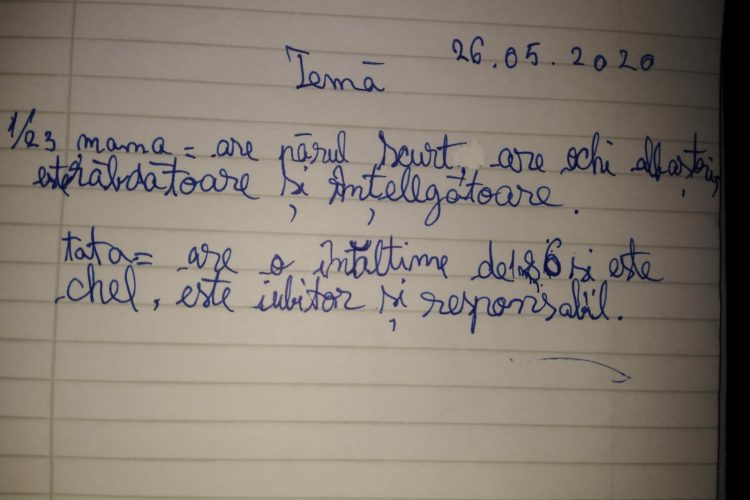 26.05.2020
Temă
1/23 mama = are părul scurt, are ochi albaștri,
este răbdătoare și înțelegătoare.
tata = are o înălțime de 1,86 și este
chel, este iubitor și responsabil.